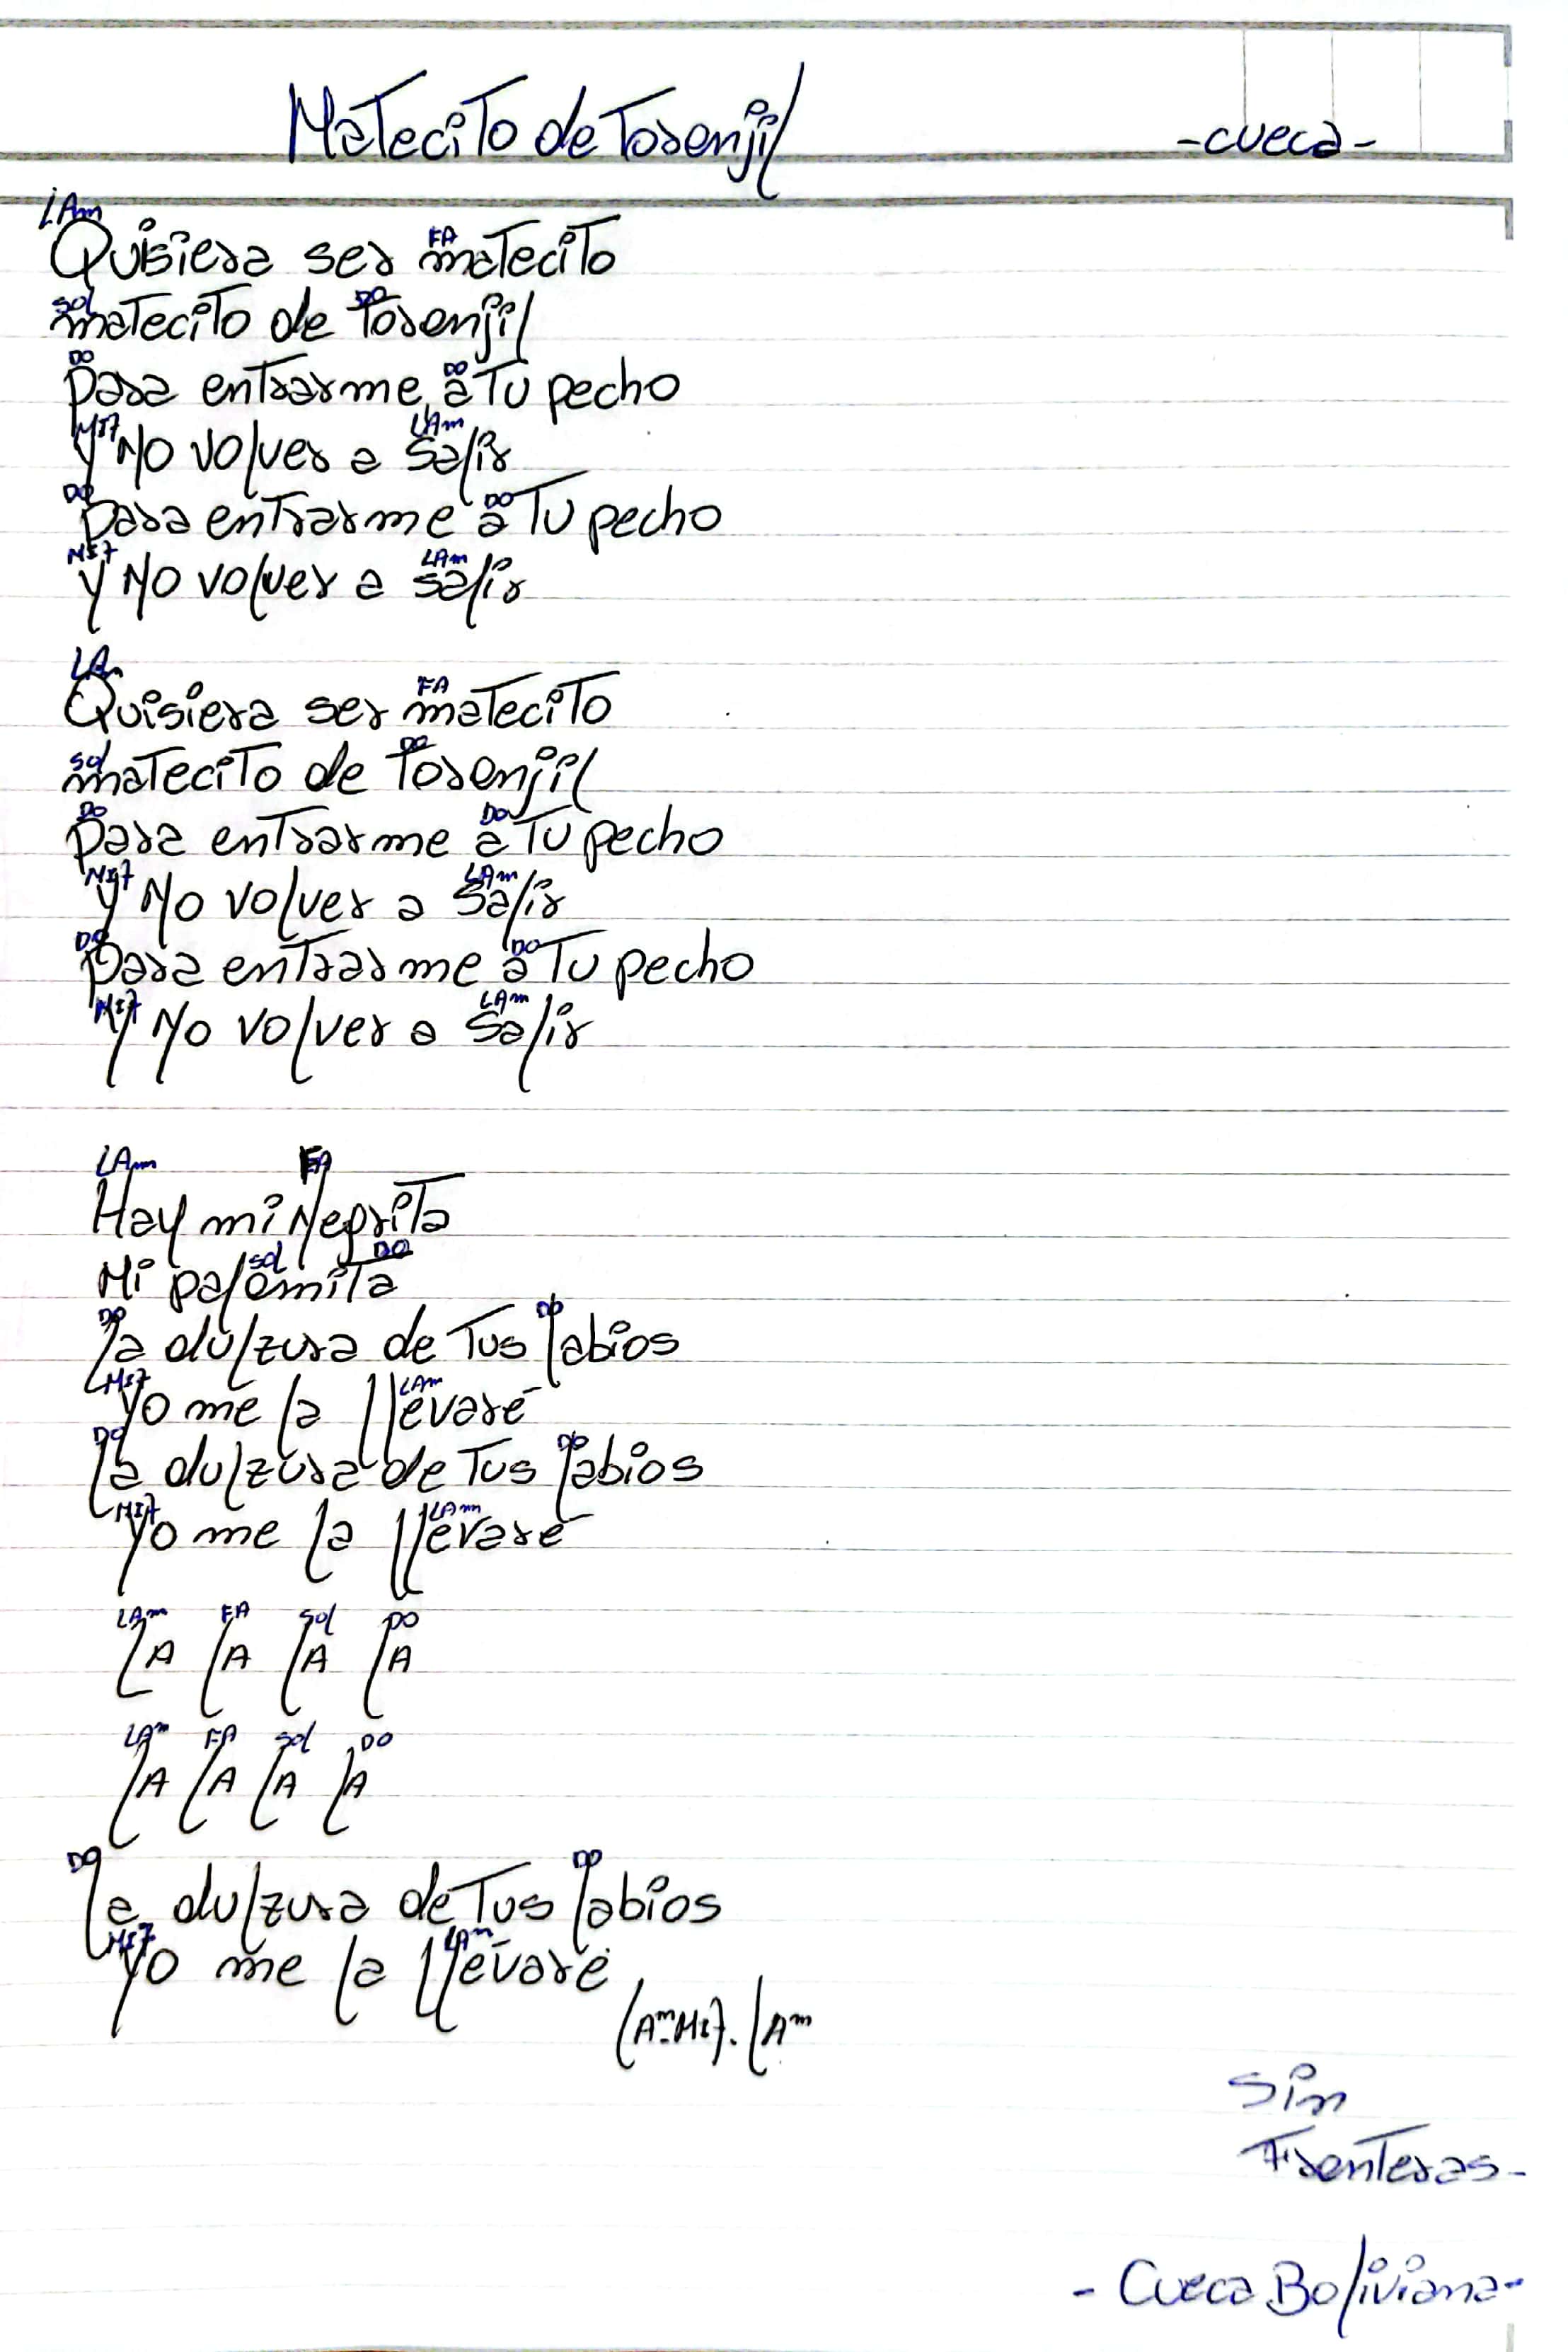 Matecito de Toronjil -cueca-
LAm FA
Quisiera ser matecito
SOL DO
matecito de toronjil
DO DO
para entrarme a tu pecho
MI7 LAm
Y no volver a salir
DO DO
para entrarme a tu pecho
MI7 LAm
Y no volver a salir
LAm FA
Quisiera ser matecito
SOL DO
matecito de toronjil
DO DO
para entrarme a tu pecho
MI7 LAm
Y no volver a salir
DO DO
para entrarme a tu pecho
MI7 LAm
Y no volver a salir
LAm FA
Hay mi Negrita
SOL DO
Mi palomita
DO DO
la dulzura de tus labios
MI7 LAm
Yo me la llevaré
DO DO
la dulzura de tus labios
MI7 LAm
Yo me la llevaré
LAm FA SOL DO
LA LA LA LA
LAm FA SOL DO
LA LA LA LA
DO DO
la dulzura de tus labios
MI7 LAm
Yo me la llevaré
LAm-MI7. LAm
Sin
Frenteras-
- Cueca Boliviana-